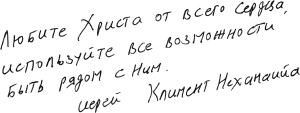 Любите Христа от всего сердца,
используйте все возможности
быть рядом с Ним.
иерей Климент Нехамайя